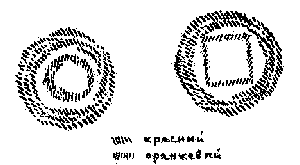 красный
оранжевый